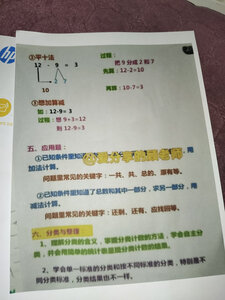 ③平十法
12 - 9 = 3
过程:
把9分成2和7
先算:12-2=10
2 7
10
再算:10-7=3
④想加算减
如:12-9=3
过程:想9+3=12
则12-9=3
五、应用题:
①已知条件里知
用
加法计算。
问题里常见的关键字:一共、共、总的、原有等。
②已知条件里知道了总数和其中一部分,求另一部分,用
减法计算。
问题里常见的关键字:还剩、还有、应找回等。
六、分类与整理
1、理解分类的含义,掌握分类计数的方法,学会自主分
类,并会用简单的统计表呈现分类计数的结果。
2、学会单一标准的分类和按不同标准的分类,特别是不
同分类标准,分类结果也不一样。
hp